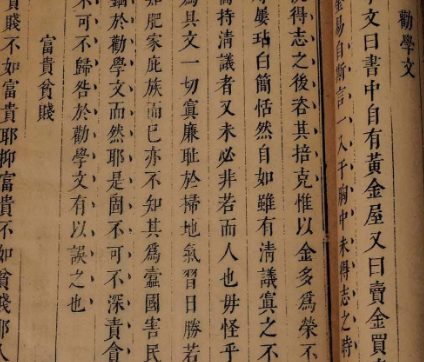 勸學文
學文曰書中自有黃金屋又曰賣金買
金易自斯言一入于胸中未得志之時
得志之後恣其掊克惟以金多為榮不
屢玷白簡恬然自如雖有清議寘之不
持清議者又未必非若而人也毋怪乎
其文一切寘廉耻於掃地氣習日勝若
知肥家庇族而已亦不知其為蠧國害民
於勸學文而然耶是固不可不深責貪
不可不歸咎於勸學文有以誤之也
富貴貧賤
貧賤不如富貴耶抑富貴不如貧賤耶人